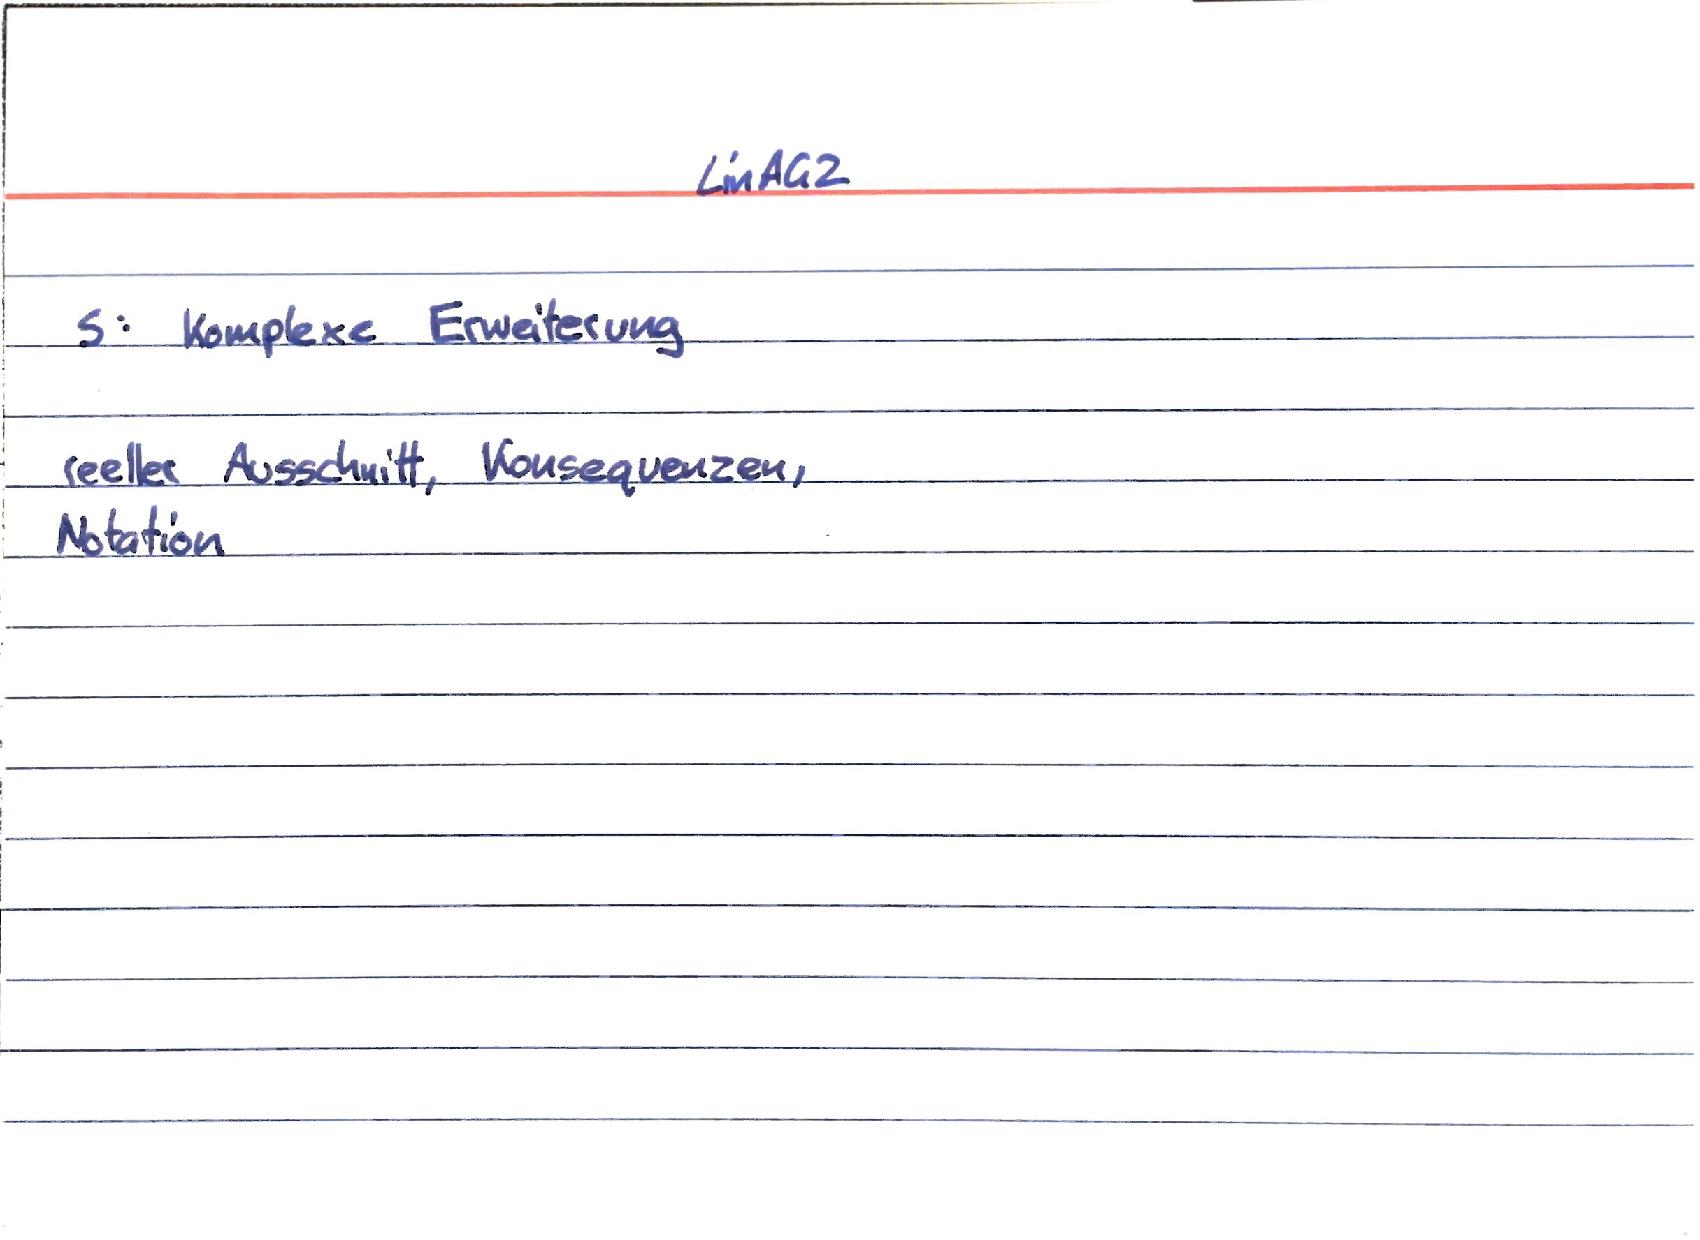 LinAG2
S: Komplexe Erweiterung
reeller Ausschnitt, Konsequenzen,
Notation